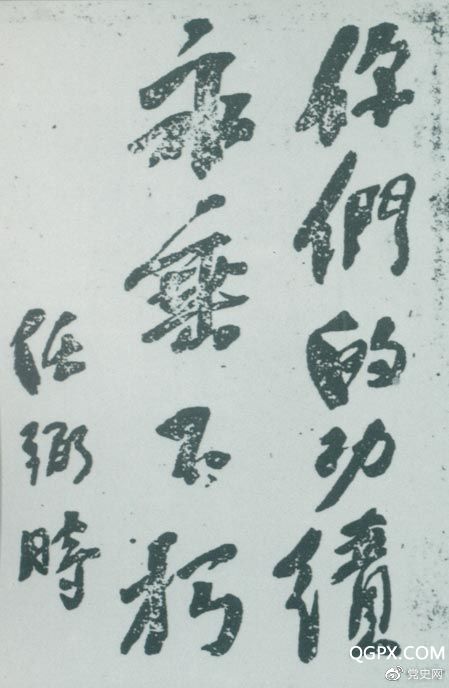 你們的功績
永垂不朽
任弼時
QGPX.COM
党史网